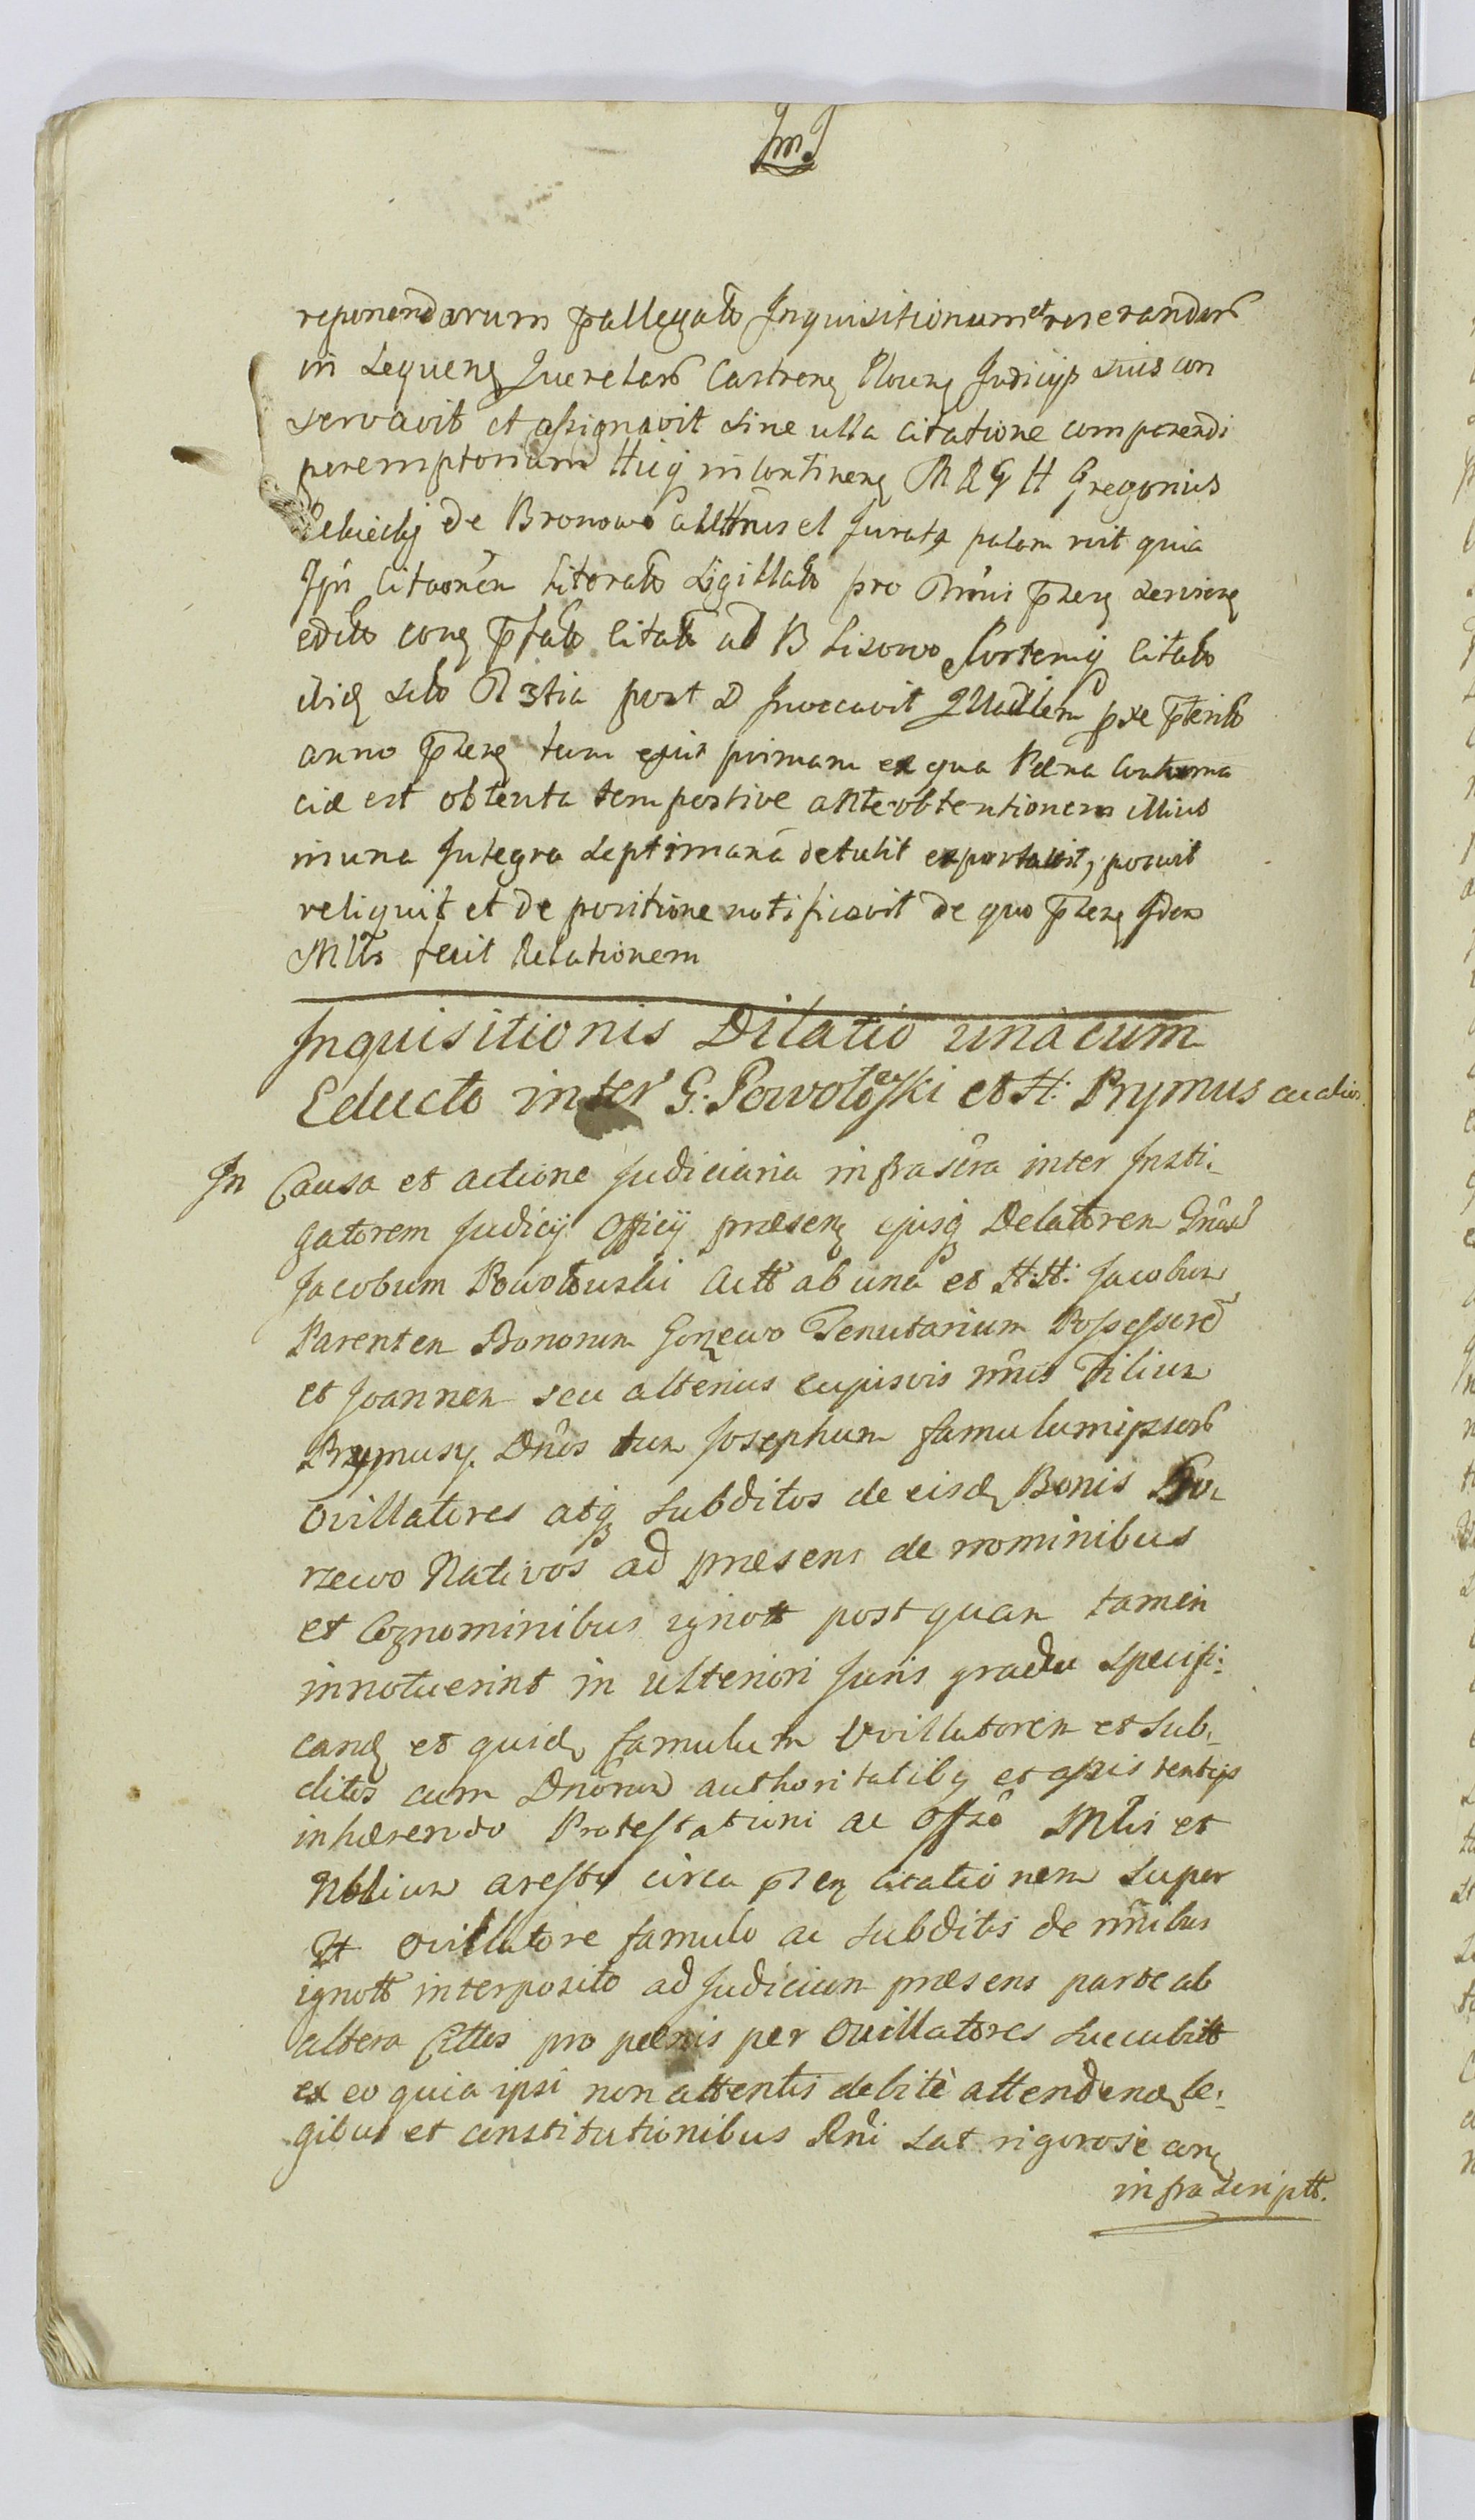 Jm.
reponendarum pallegato Inquisitionum et reserandar
in Sequenq Querelar Castrenq Plocenq Judicijs suis con
servavit et assignavit sine ulla citatione comparendi
peremptorium Huiq in Continenq M R G H Gregorius
de Bronowo et Jurats palam rut quia
Ipse Citaonem literato Sigillato pro Tmis pnzenq
edito conq pfato Citato ad B Lisowo Citato
ibiq sub 3tia post D Invocavit pxe pterito
anno tum ejus primam ex qua Pæna Contuma
ciæ est obtenta tempestive ante obtentionem illius
in una Integra Septimana detulit exportavit, posuit
reliquit et de positione notificavit de quo Idem
Mtts fecit Relationem
Inquisitionis Dilatio unàcum
Educto inter G. Powołoski et H: Prymus ac alios.
In Causa et actione Judiciaria infrascra inter Insti-
gatorem Judicij Officij præsenq ejusq Delatorem Gnosu
Jacobum Powołouski Actt ab una et H:H: Jacobum
Parentem Bonorum Gorzewo Tenutarium Possessore
et Joannem seu alterius cujusvis nmis Filium
Prymusy Dnos tum Josephum famulum ipsor
Ovillatores atq Subditos de eisdq Bonis Go-
rzewo Nativos ad præsens de nominibus
et Cognominibus ignott postquam tamen
innotuerint in ulteriori Juris gradu Specifi-
candq et quidq famulum Ovillatorem et Sub-
ditos cum Dnorum authoritatibq et assistentijs
inhærendo Protestationi ac Offso Mtis et
Nobilium aresto circa pnzenq citationem super
H ovillatore famulo ac Subditis de nmibus
ignott interposito ad Judicium præsens parte ab
altera Cttos pro pænis per Ovillatores succubitt
ex eo quia ipsi non attentis debitè attendendq le-
gibus et constitutionibus Rni sat rigorosè conq
infrascriptt.